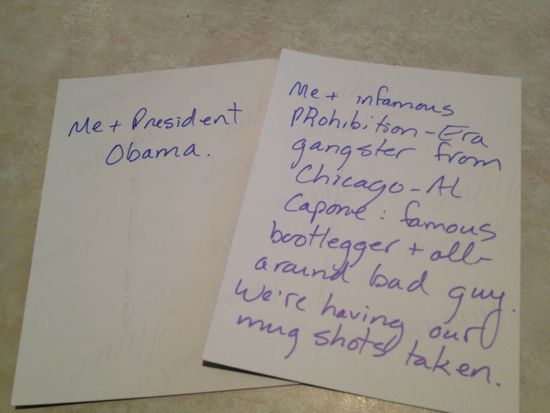 Me + President
Obama.
Me + infamous
PRohibition-Era
gangster from
Chicago-AL
Capone: famous
bootlegger + all-
around bad guy.
We're having our
mug shots taken.